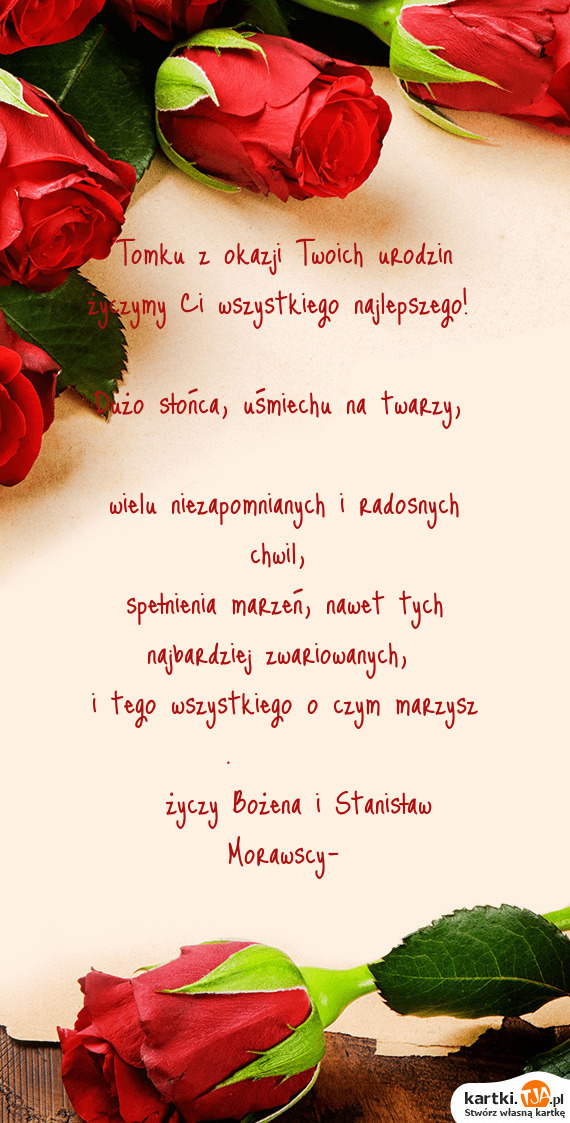 Tomku z okazji Twoich urodzin
życzymy Ci wszystkiego najlepszego!
Dużo słońca, uśmiechu na twarzy,
wielu niezapomnianych i radosnych
chwil,
spełnienia marzeń, nawet tych
najbardziej zwariowanych,
i tego wszystkiego o czym marzysz
.
życzy Bożena i Stanisław
Morawscy-
kartki.TJA.pl
Stwórz własną kartkę